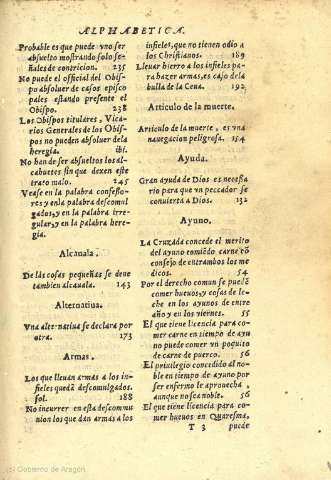 ALPHABETICA.
Probable es que puede vno ser
absuelto mostrando solo se-
ñales de contricion. 235
No puede el official del Obis-
po absoluer de casos episco
pales estando presente el
Obispo. 238
Los Obispos titulares, Vica-
rios Generales de los Obis-
pos no pueden absoluer de la
heregia. ibi.
No han de ser absueltos los al-
cahuetes sin que dexen este
trato malo. 245
Vease en la palabra confesso-
res y en la palabra descomul
gados, y en la palabra irre-
gular, y en la palabra here-
gia.
Alcauala.
De las cosas pequeñas se deue
tambien alcauala. 143
Alternatiua.
Vna alternatiua se declara por
otra. 173
Armas.
Los que lleuan armas a los in-
fieles quedã descomulgados.
fol. 188
No incurren en esta descomu
nion los que dan armas a los
infieles, que no tienen odio a
los Christianos. 189
Lleuar hierro a los infieles pa-
ra hazer armas, es caso de la
bulla de la Cena. 192
Articulo de la muerte.
Articulo de la muerte, es vna
nauegacion peligrosa. 154
Ayuda.
Gran ayuda de Dios es necessa
rio para que vn peccador se
conuierta a Dios. 132
Ayuno.
La Cruzada concede el merito
del ayuno comiẽdo carne cõ
consejo de entrambos los me
dicos. 54
Por el derecho comun se puedẽ
comer hueuos, y cosas de le-
che en los ayunos de entre
año y en los viernes. 55
El que tiene licencia para co-
mer carne en tiempo de ayu
no puede comer vn poquito
de carne de puerco. 56
El priuilegio concedido al no-
ble en tiempo de ayuno por
ser enfermo le aprouecha,
aunque no sea noble. 56
El que tiene licencia para co-
mer hueuos en Quaresma,
T 3 puede
(c) Gobierno de Aragón